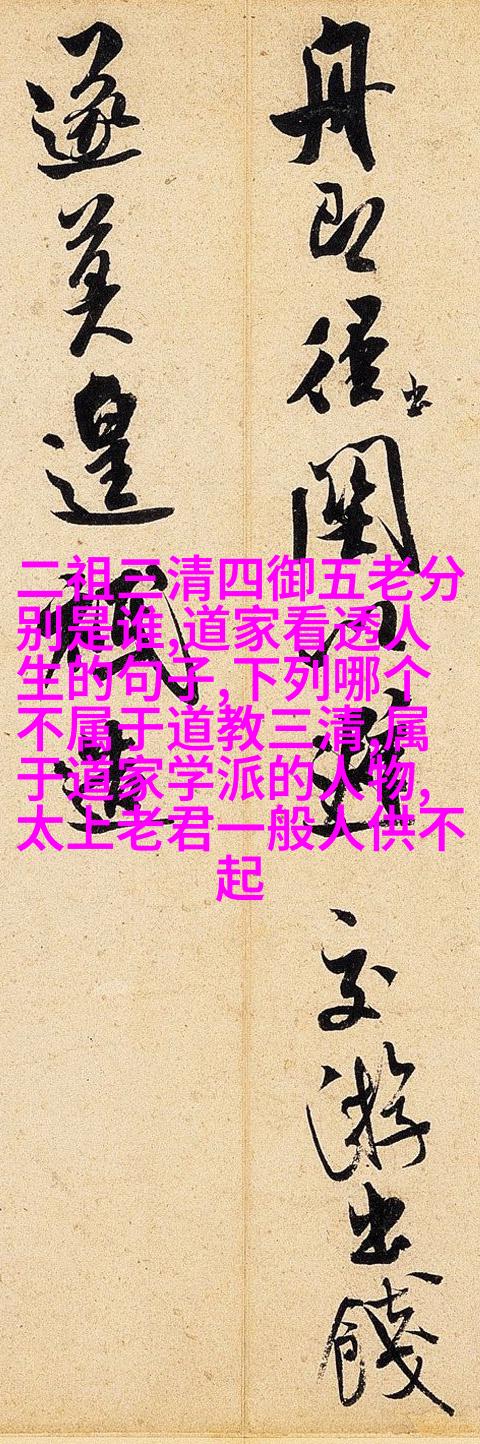 舟即徑出関交游出餞
遂莫遑
二祖三清四御五老分
别是谁,道家看透人
生的句子,下列哪个
不属于道教三清,属
于道家学派的人物,
太上老君一般人供不
起